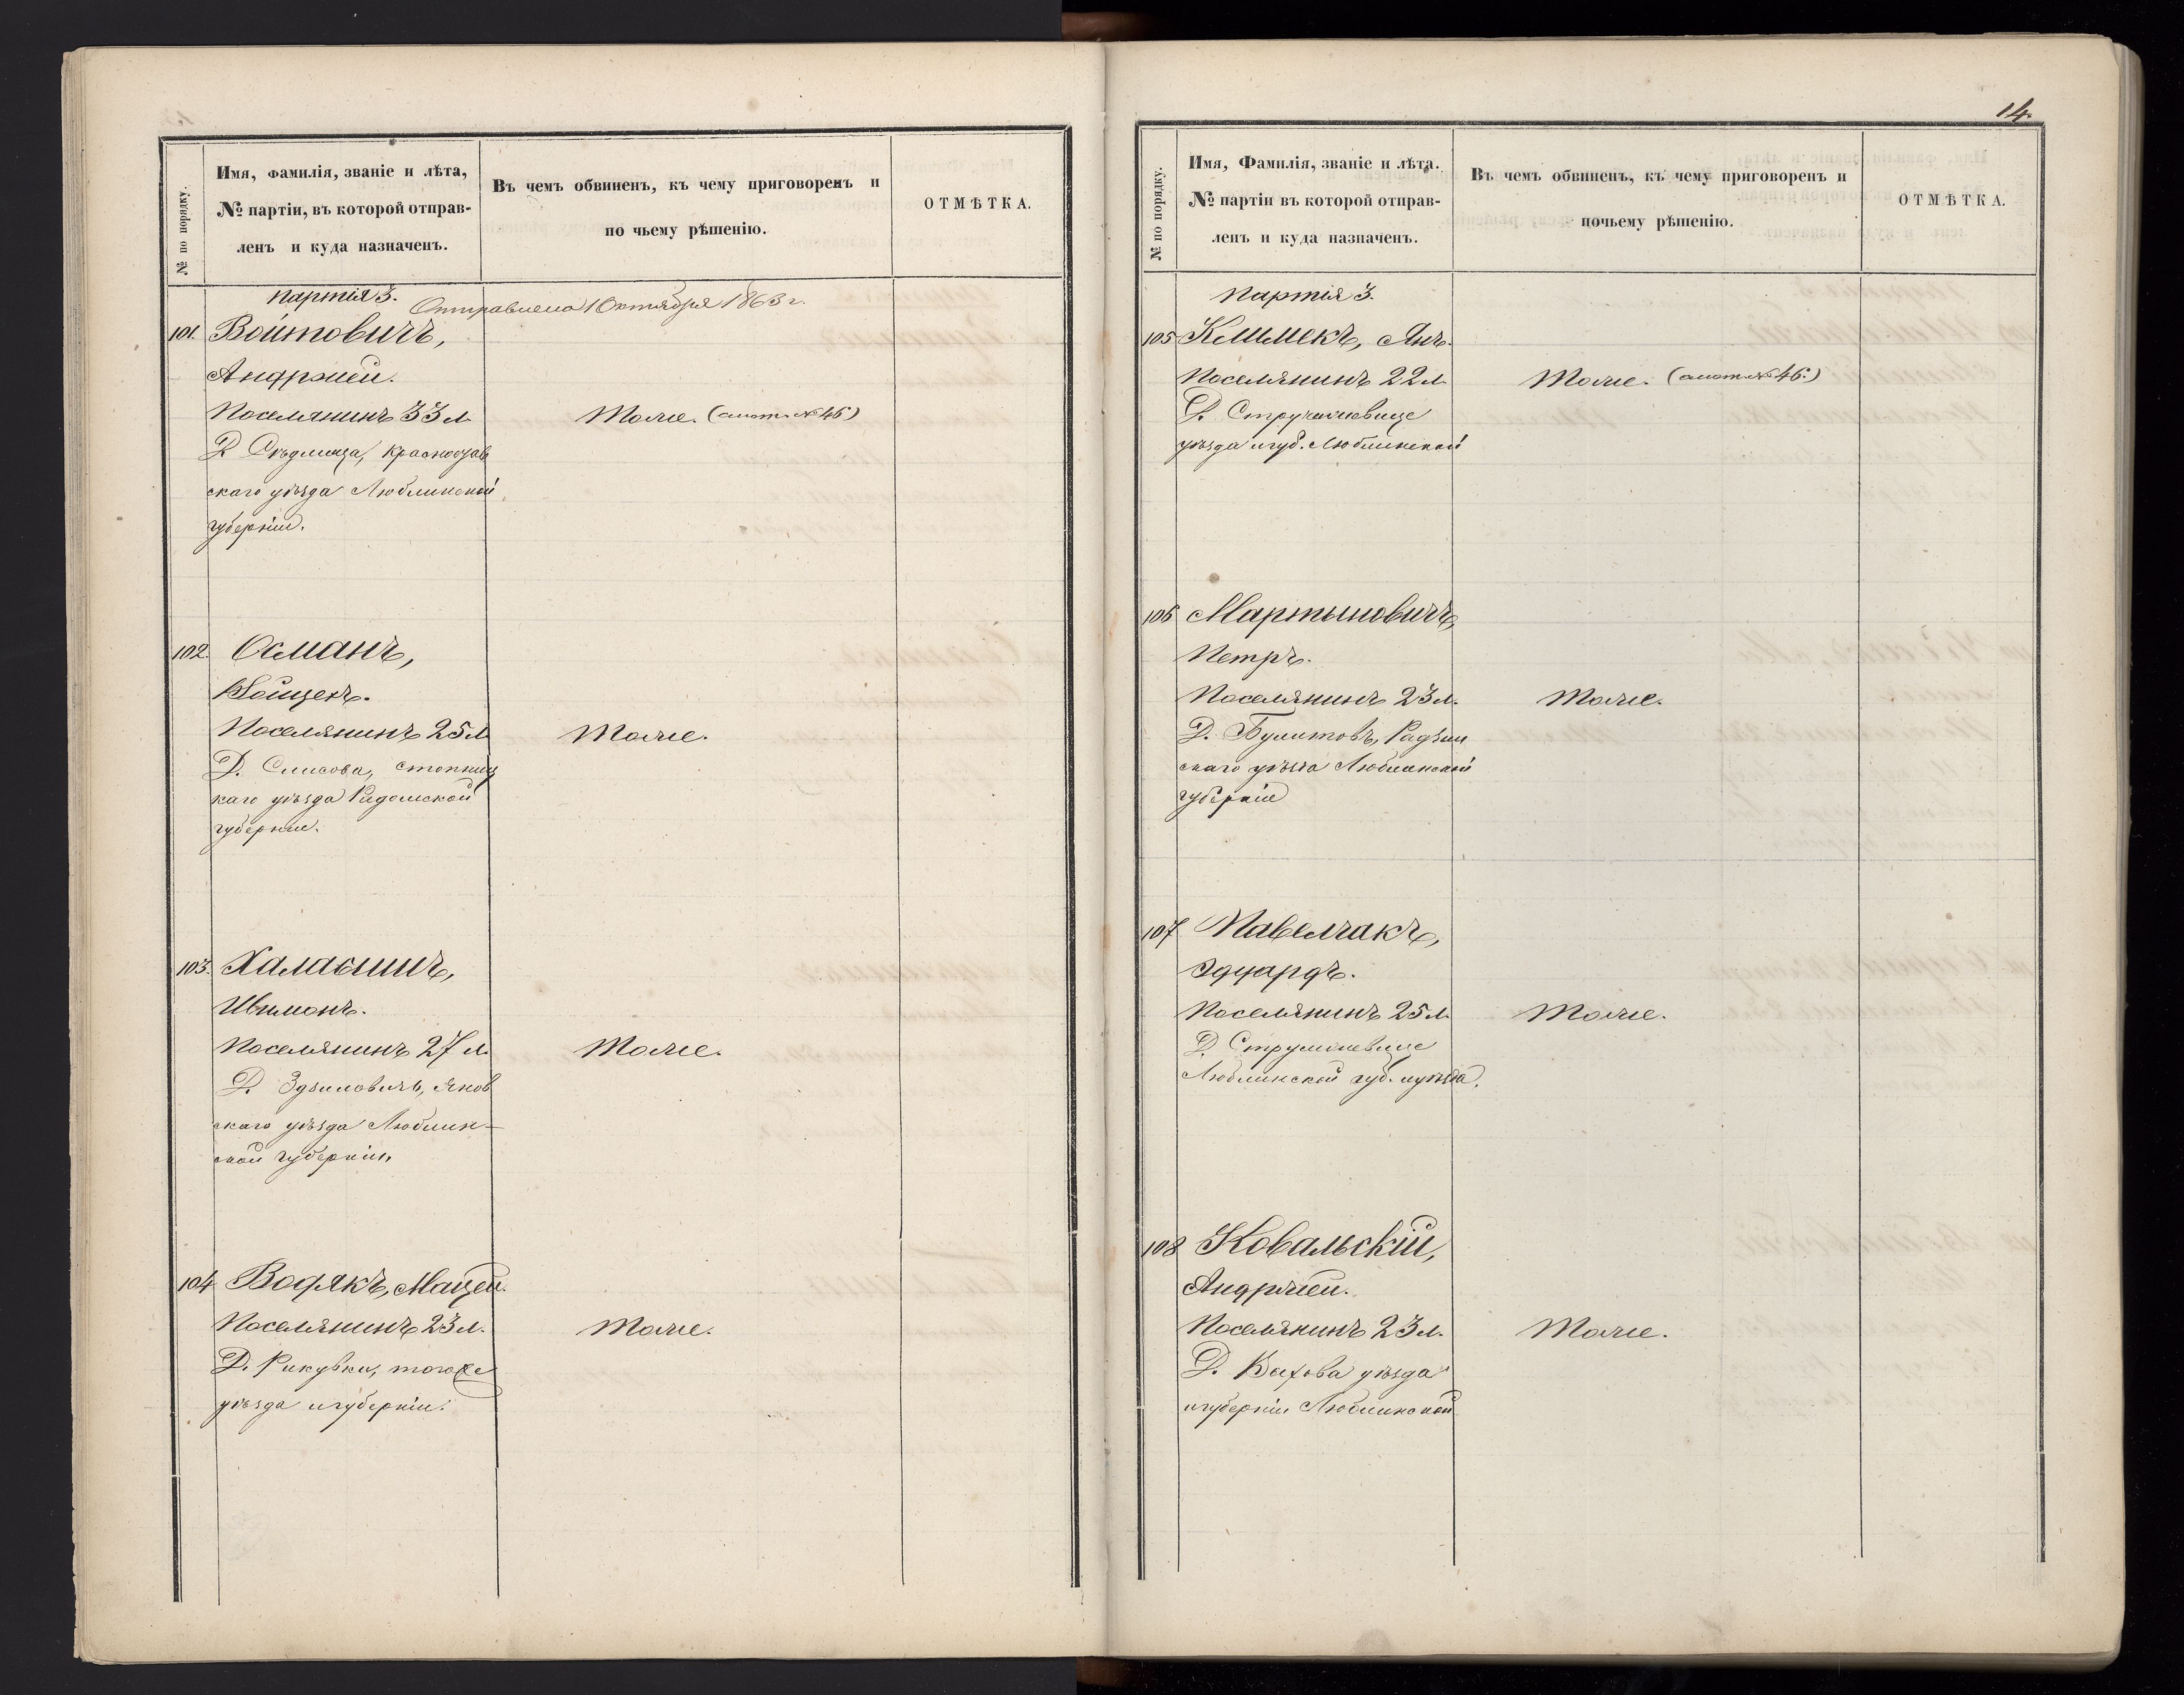 № по порядку.
Имя, фамилія, званіе и лѣта,
№ партіи, въ которой отправ-
ленъ и куда назначенъ.
Въ чемъ обвиненъ, къ чему приговоренъ и
по чьему рѣшенію.
ОТМѢТКА.
партія 3.
Отправлена 1 Октября 1863 г.
101. Войтовичъ,
Андржей.
Поселянинъ 33 л.
Тоже. (смот. № 46)
Д. Сѣдлища, Красностав
скаго уѣзда Люблинской
губерніи.
102. Османъ,
Войцехъ.
Поселянинъ 25 л
Тоже.
Д. Стопниц
каго уѣзда Радомской
губерніи.
103.
Шимонъ.
Поселянинъ 27 л.
Тоже.
Д. Здзиловичъ, Янов
скаго уѣзда Люблин-
ской губерніи,
104 Водякъ, Мацей.
Поселянинъ 23 л.
Тоже.
Д. тогоже
уѣзда и губерніи.
14.
№ по порядку.
Имя, Фамилія, званіе и лѣта.
№ партіи въ которой отправ-
ленъ и куда назначенъ.
Въ чемъ обвиненъ, къ чему приговоренъ и
почьему рѣшенію.
ОТМѢТКА.
Партія 3.
105 Климекъ, Янъ.
Поселянинъ 22 л
Тоже. (смот. № 46.)
Д.
уѣзда и губ. Люблинской
106 Мартыновичъ,
Петръ.
Поселянинъ 23 л.
Тоже.
Д. Радзин
скаго уѣзда Люблинской
губерніи
107 Павелчакъ,
Эдуардъ.
Поселянинъ 25 л.
Тоже.
Д.
Люблинской губ. и уѣзда.
108 Ковальскій,
Андржей.
Поселянинъ 23 л.
Тоже.
Д. Быхова уѣзда
и губерніи Люблинской